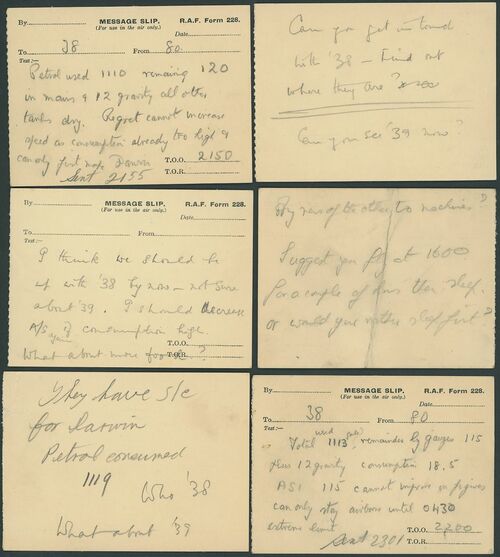 By MESSAGE SLIP. R.A.F. Form 228.
(For use in the air only.)
Date
To 38 From 80
Text:-
Petrol used 1110 remaining 120
in mains & 12 gravity all other
tanks dry. Regret cannot increase
speed as consumption already too high &
can only just Darwin
T.O.O. 2150
Sent 2155
T.O.R.
Can you get in touch
with '38 — Find out
where they are?
Can you see '39 now?
By MESSAGE SLIP. R.A.F. Form 228.
(For use in the air only.)
Date
To From
Text:-
I think we should be
up with '38 by now — not sure
about '39. I should decrease
A/S again if consumption high.
T.O.O.
What about more ?
T.O.R.
Any news of the other two machines?
I suggest you fly at 1600
for a couple of hrs then sleep.
or would you rather sleep first?
They have s/c
for Darwin
Petrol consumed
1119
Who '38
What about '39
By MESSAGE SLIP. R.A.F. Form 228.
(For use in the air only.)
Date
To 38 From 80
Text:-
used
Total 1113, remainder by gauges 115
plus 12 gravity consumption 18.5
ASI 115 cannot improve on figures
can only stay airborne until 0430
extreme limit
T.O.O. 2200
Sent 2301
T.O.R.